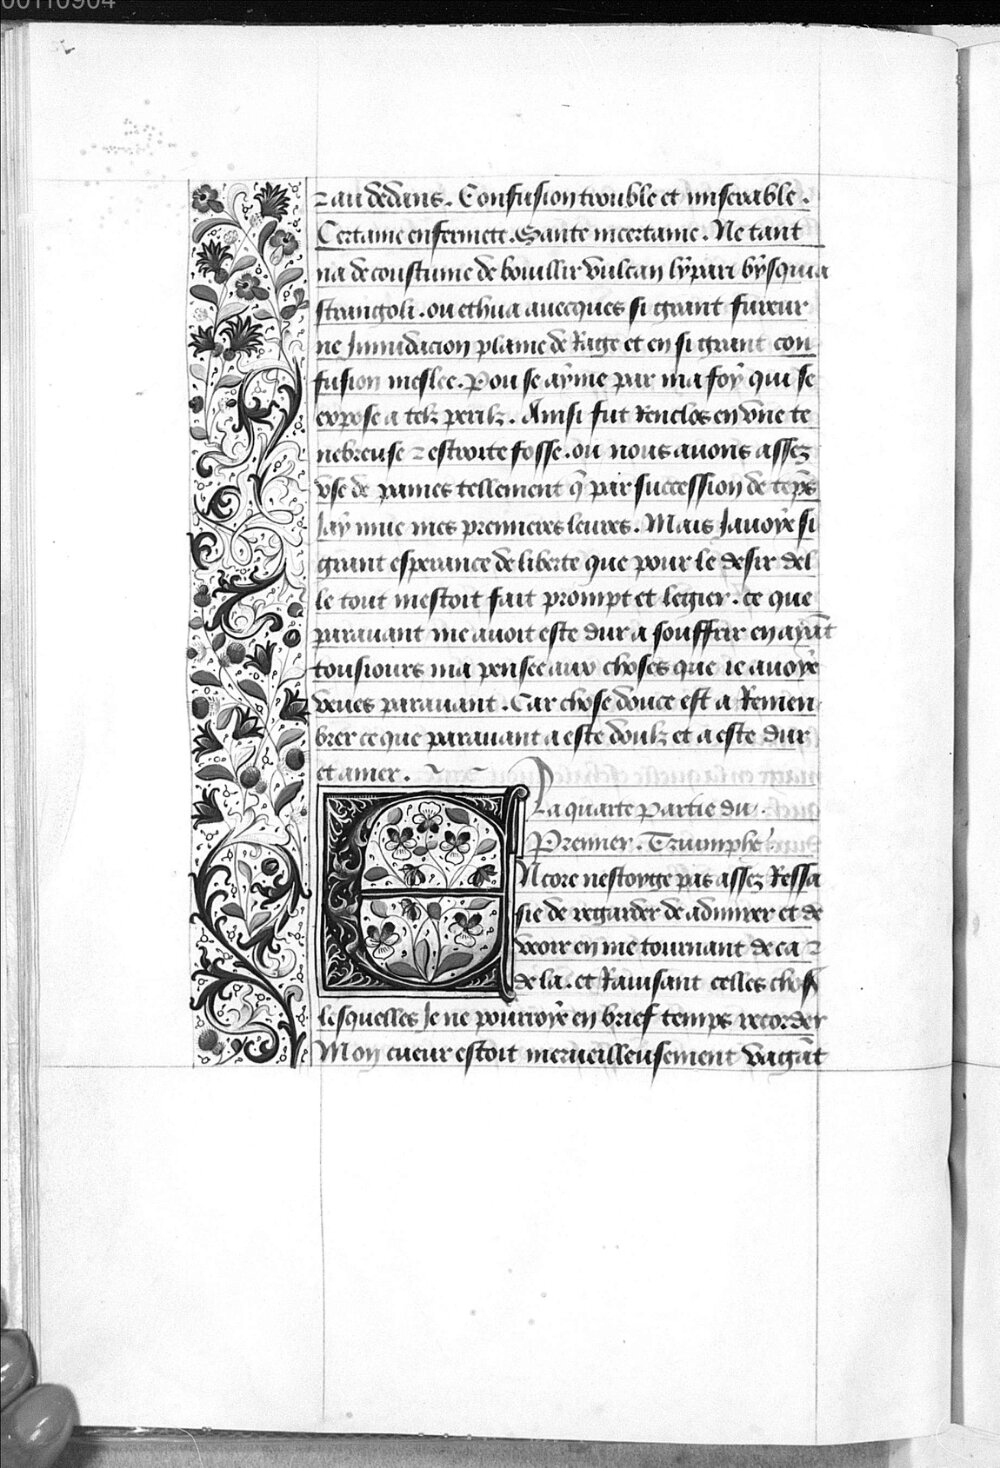 00110904
⁊ au dedans. Confusion trouble et miserable.
Certaine enfermete. Sante incertaine. Ne tant
na de coustume de bouillir vulcan lypari bysquia
strangoli. ou ethna auecques si grant fureur
ne Innudacion plaine de Rage et en si grant con
fusion meslee. Pou se ayme par ma foy qui se
expose a telz perilz. Ainsi fut Renclos en vne te
nebreuse ⁊ estroite fosse. ou nous auons assez
vse de paines tellement q̄ par succession de tēps
Jay mue mes premieres leures. Mais Jauoye si
grant esperance de liberte que pour le desir del
le tout mestoit fait prompt et legier. ce que
parauant me auoit este dur a souffrir en ayāt
tousiours ma pensee aux choses que ie auoye
veues parauant. Car chose douce est a Remen
brer ce que parauant a este doulz et a este dur
et amer.
La quarte partie du
Premier. Triumphe.
Encore nestoyge pas assez Ressa
sie de regarder de admirer et de
veoir en me tournant de ca ⁊
de la. et Rauisant celles chos
lesquelles Je ne pourroye en brief temps recorder
Mon cueur estoit merueilleusement vagāt